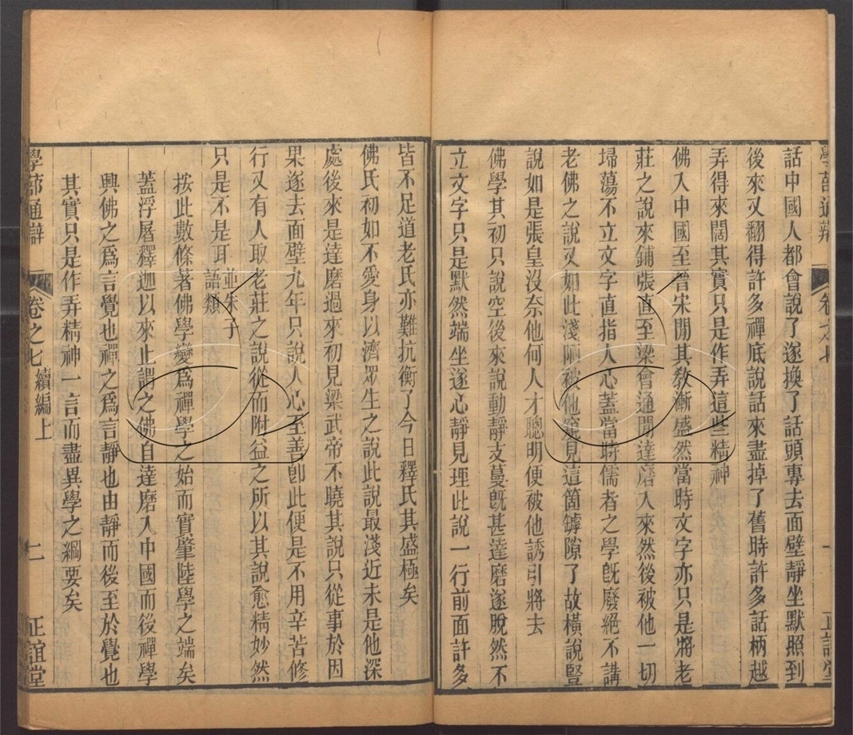 話中國人都會說了遂換了話頭專去面壁靜坐默照到
後來又翻得許多禪底說話來盡掉了舊時許多話柄越
弄得來闊其實只是作弄這些精神
佛入中國至晉宋間其教漸盛然當時文字亦只是將老
莊之說來鋪張直至梁會通間達磨入來然後被他一切
埽蕩不立文字直指人心蓋當時儒者之學旣廢絕不講
老佛之說又如此淺陋被他窺見這箇罅隙了故橫說豎
說如是張皇沒奈他何人才聰明便被他誘引將去
佛學其初只說空後來說動靜支蔓旣甚達磨遂脫然不
立文字只是默然端坐遂心靜見理此說一行前面許多
皆不足道老氏亦難抗衡了今日釋氏其盛極矣
佛氏初如不愛身以濟眾生之說此說最淺近未是他深
處後來是達磨過來初見梁武帝不曉其說只從事於因
果遂去面壁九年只說人心至善卽此便是不用辛苦修
行又有人取老莊之說從而附益之所以其說愈精妙然
只是不是耳
並朱子
語類
按此數條著佛學變爲禪學之始而實肇陸學之端矣
蓋浮屠釋迦以來止謂之佛自達磨入中國而後禪學
興佛之爲言覺也禪之爲言靜也由靜而後至於覺也
其實只是作弄精神一言而盡異學之綱要矣
學蔀通辯
卷之七續編上
二
正誼堂